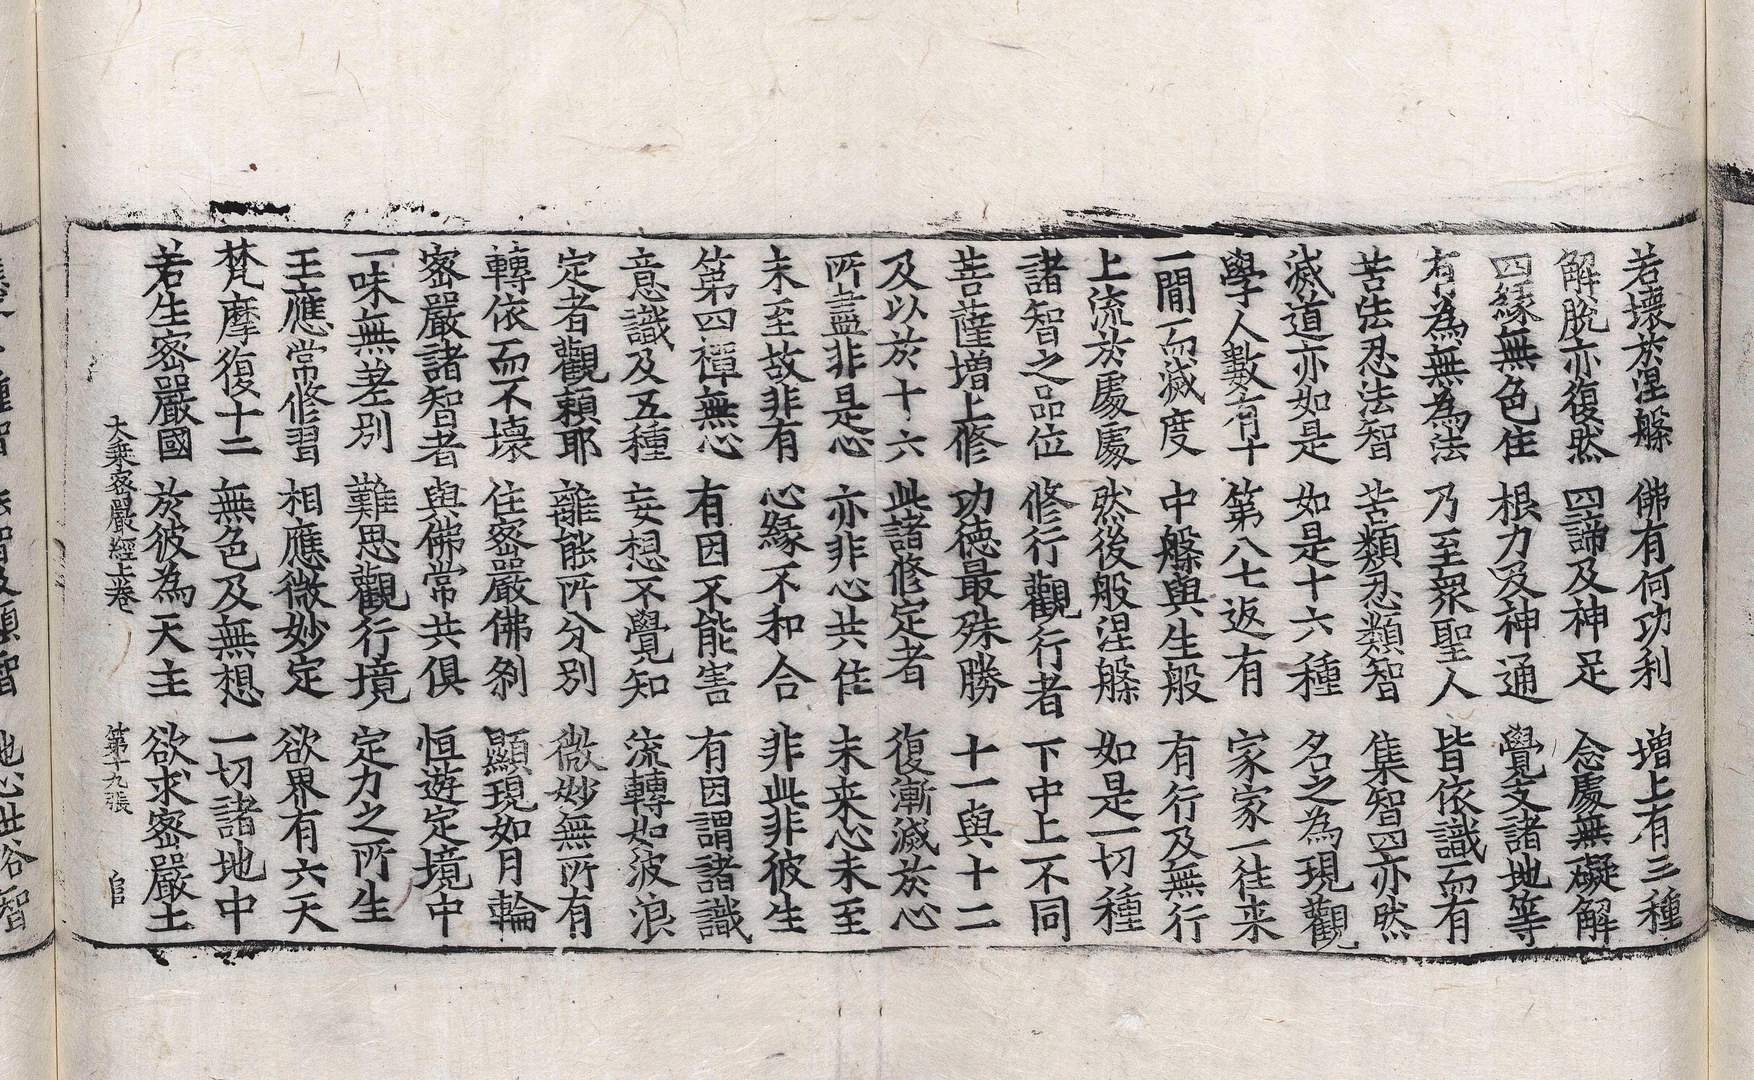 若壞於涅槃　佛有何功利　增上有三種
解脫亦復然　四諦及神足　念處無礙解
四緣無色住　根力及神通　覺支諸地等
有為無為法　乃至眾聖人　皆依識而有
苦法忍法智　苦類忍類智　集智四亦然
滅道亦如是　如是十六種　名之為現觀
學人數有十　第八七返有　家家一往来
一閒而滅度　中般與生般　有行及無行
上流於處處　然後般涅槃　如是一切種
諸智之品位　修行觀行者　下中上不同
菩薩增上修　功德最殊勝　十一與十二
及以於十六　此諸修定者　復漸滅於心
所盡非是心　亦非心共住　未来心未至
未至故非有　心緣不和合　非此非彼生
第四禪無心　有因不能害　有因謂諸識
意識及五種　妄想不覺知　流轉如波浪
定者觀賴耶　離能所分別　微妙無所有
轉依而不壞　住密嚴佛剎　顯現如月輪
密嚴諸智者　與佛常共俱　恒遊定境中
一味無差別　難思觀行境　定力之所生
王應常修習　相應微妙定　欲界有六天
梵摩復十二　無色及無想　一切諸地中
若生密嚴國　於彼為天主　欲求密嚴土
大乘密嚴經上卷　第十九張